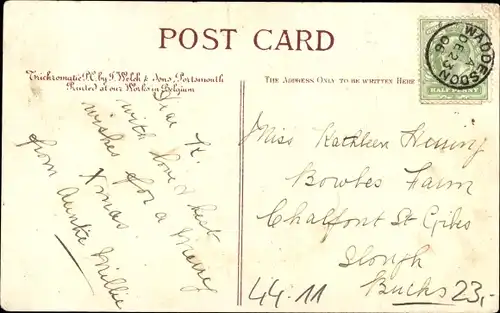 POST CARD
Trichromatic P.C. by J. Welch & Sons, Portsmouth
Printed at our Works in Belgium
THE ADDRESS ONLY TO BE WRITTEN HERE
WADDESDON
DE 23
06
HALFPENNY
Dear K.
with love & best
wishes for a Merry
Xmas.
from Auntie Millie
Miss Kathleen
Farm
Chalfont St Giles
Slough
Bucks
44.11
23,-